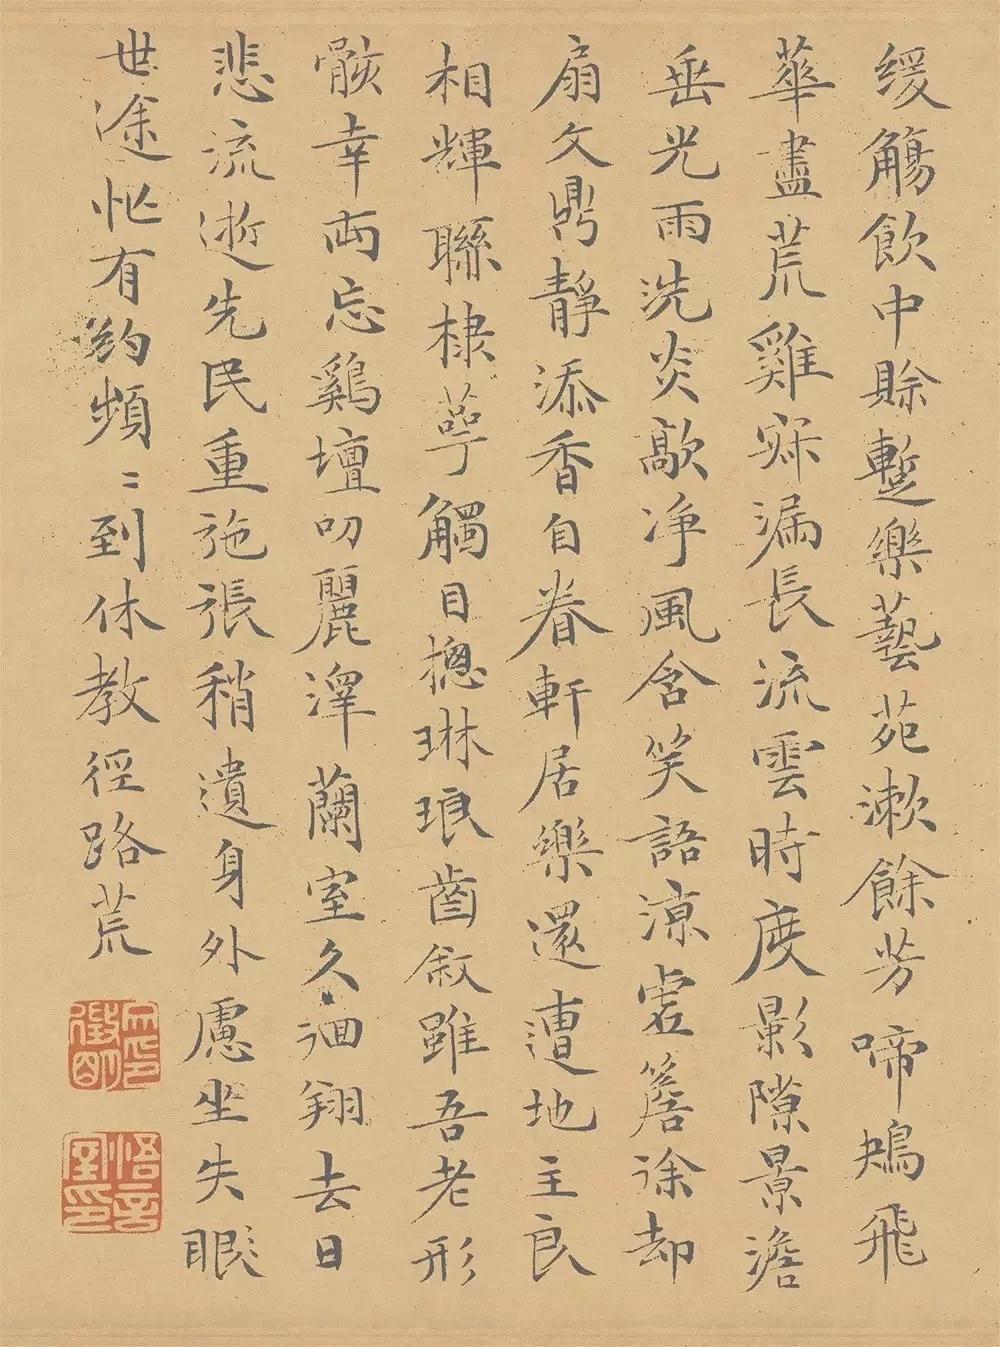 缓觴飲中賒蹔樂藝苑漱餘芳啼鴂飛
華盡荒雞寐漏長流雲時度影隙景澹
垂光雨洗炎歊净風含笑語涼虗簷徐却
扇文鼎静添香自眷軒居樂還遭地主良
相輝聯棣萼觸目摠琳琅齒敘雖吾老形
骸幸両忘鷄壇叨麗澤蘭室久洄翔去日
悲流逝先民重弛張稍遺身外慮坐失眼
世途忙有約頻〻到休教徑路荒
徵明印
悟言室印